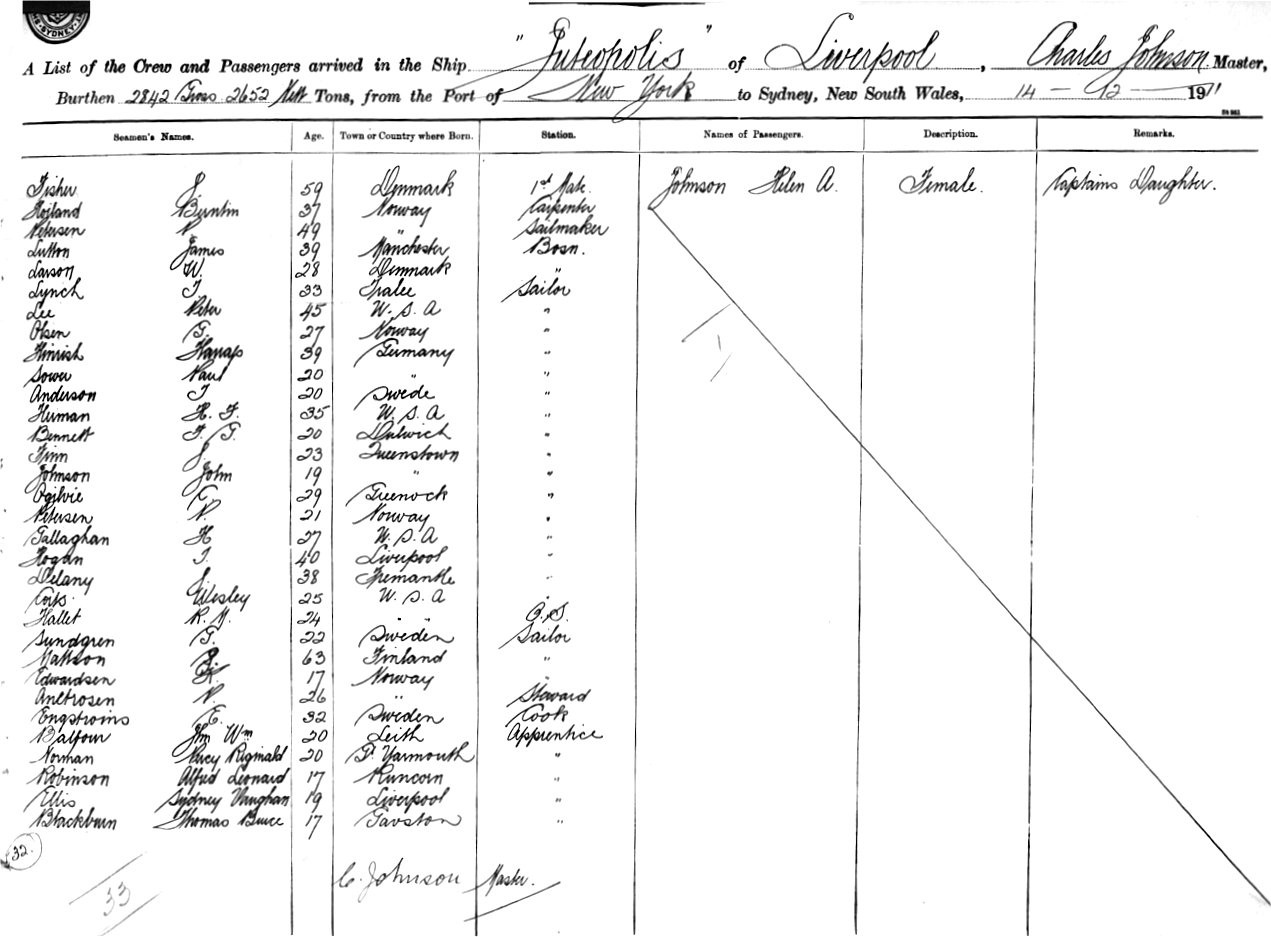 SYDNEY
A List of the Crew and Passengers arrived in the Ship "Juteopolis" of Liverpool, Charles Johnson Master,
Burthen 2842 Gross 2652 Nett Tons, from the Port of New York to Sydney, New South Wales, 14 - 12 - 1911
Seamen's Names. Age. Town or Country where Born. Station. Names of Passengers. Description. Remarks.
Fisher J. 59 Denmark 1st Mate. Johnson Helen A. Female. Captains Daughter.
Hoiland Berntin 37 Norway Carpenter
Petersen P. 49 " Sailmaker
Lutton James 39 Manchester Bosn.
Larson W. 28 Denmark "
Lynch T. 33 Tralee Sailor
Lee Peter 45 U.S.A "
Olsen G. 27 Norway "
Hinrich 39 Germany "
Sower Paul 20 " "
Anderson T 20 Swede "
Herman H. F. 35 U.S.A "
Bennett F. G. 20 Dulwich "
Finn J. 23 Queenstown "
Johnson John 19 " "
Ogilvie C. 29 Greenock "
Petersen P. 21 Norway "
Gallaghan H 27 U.S.A "
Hogan T. 40 Liverpool "
Delany J. 38 Fremantle "
Wesley 25 U.S.A "
Hallet R. M. 24 " " O.S.
Sundgren G. 22 Sweden Sailor
Mattson 63 Finland "
Edwardsen K. 17 Norway "
P. 26 " Steward
E. 32 Sweden Cook
Balfour Jhn Wm 20 Leith Apprentice
Norman Percy Reginald 20 Gt Yarmouth "
Robinson Alfred Leonard 17 Runcorn "
Ellis Sydney Vaughan 19 Liverpool "
Blackburn Thomas Bruce 17 Garston "
32.
33
C. Johnson Master.
1